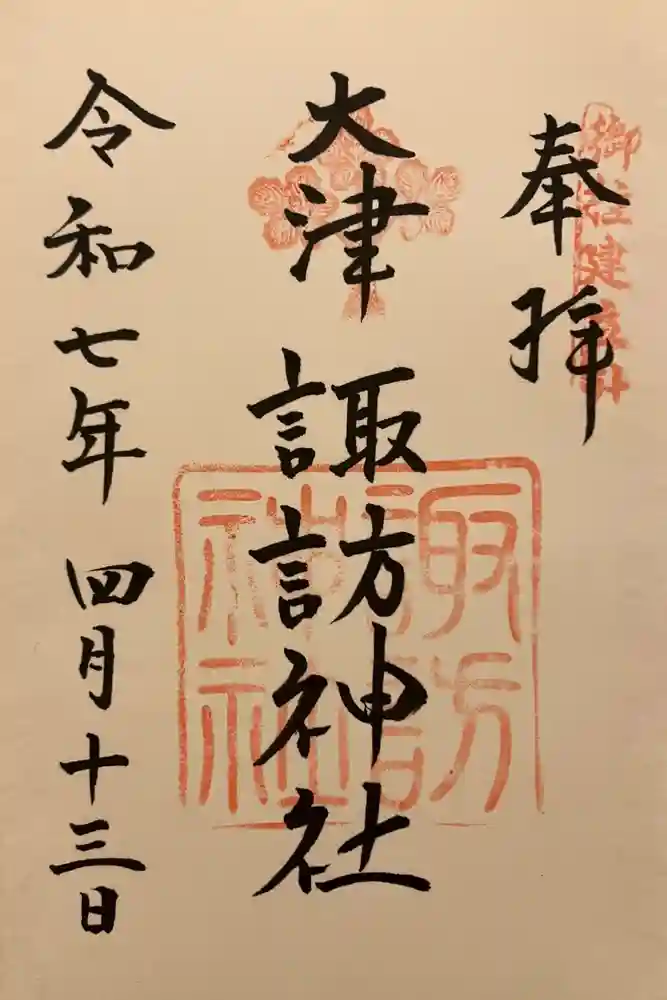 奉拝
大津諏訪神社
諏訪神社
令和七年四月十三日